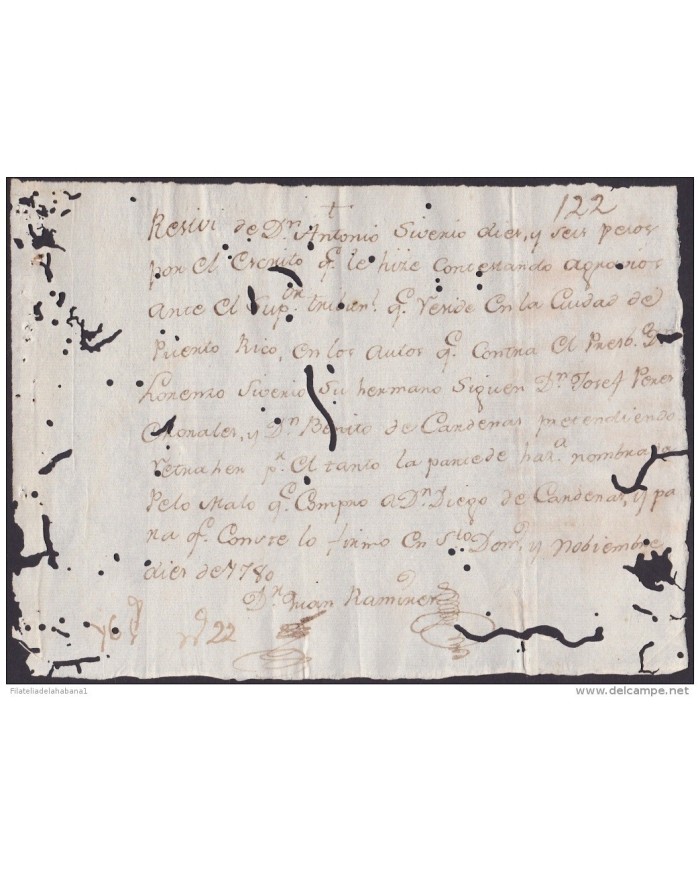 122
Resivi de Dn. Antonio Siverio dies, y seis pesos
por el Escrito q. le hize Contestando agravios
ante el Sup.or tribun.l q. Recide En la Cuidad de
Puerto Rico, en los autos q. Contra el Presb.o Dn.
Lorenzo Siverio Su hermano Siguen Dn. Josef Peres
Morales, y Dn. Benito de Cardenas pretendiendo
retraher pr. el tanto la parte de haz.a nombrada
Pelo Malo q. Compro a Dn. Diego de Cardenas, y pa
ra q. Conste lo firmo en Sto. Domo. y Nobiembre
dies de 1780
Dr. Juan Ramires
22
Filateliadelahabana1
www.delcampe.net